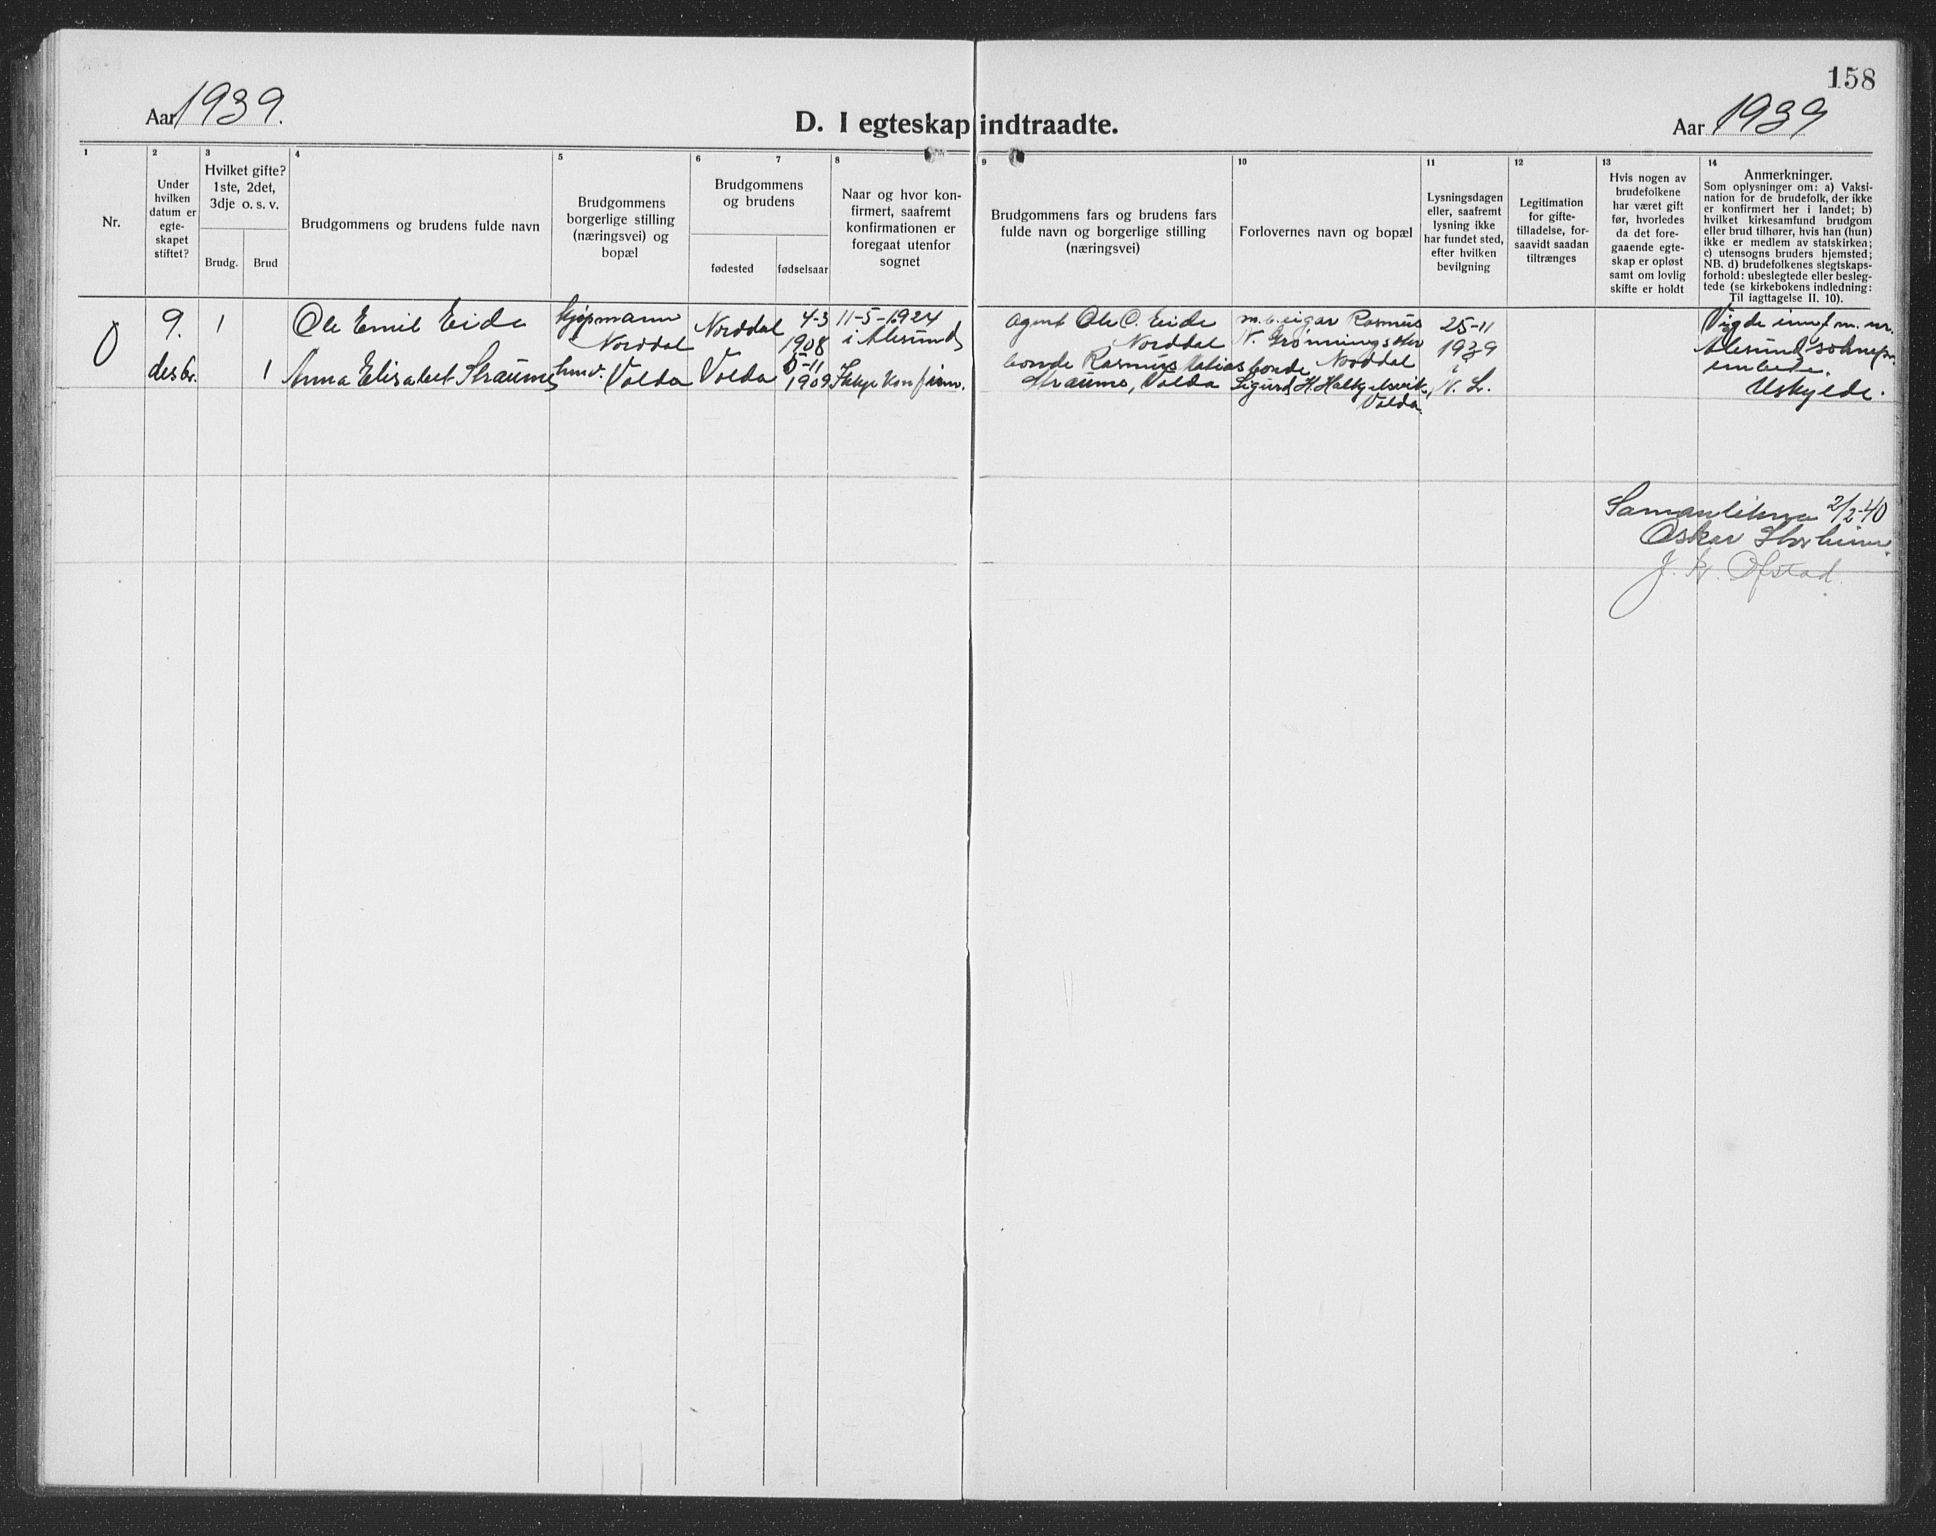 158
Aar 1939.
D. I egteskap indtraadte.
Aar 1939
1
2
3
4
5
6
7
8
9
10
11
12
13
14
Nr.
Under
hvilken
datum er
egte-
skapet
stiftet?
Hvilket gifte?
1ste, 2det,
3dje o. s. v.
Brudg.
Brud
Brudgommens og brudens fulde navn
Brudgommens
borgerlige stilling
(næringsvei) og
bopæl
Brudgommens
og brudens
fødested
fødselsaar
Naar og hvor kon-
firmert, saafremt
konfirmationen er
foregaat utenfor
sognet
Brudgommens fars og brudens fars
fulde navn og borgerlige stilling
(næringsvei)
Forlovernes navn og bopæl
Lysningsdagen
eller, saafremt
lysning ikke
har fundet sted,
efter hvilken
bevilgning
Legitimation
for gifte-
tilladelse, for-
saavidt saadan
tiltrænges
Hvis nogen av
brudefolkene
har været gift
før, hvorledes
da det fore-
gaaende egte-
skap er opløst
samt om lovlig
skifte er holdt
Anmerkninger.
Som oplysninger om: a) Vaksi-
nation for de brudefolk, der ikke
er konfirmert her i landet; b)
hvilket kirkesamfund brudgom
eller brud tilhører, hvis han (hun)
ikke er medlem av statskirken;
c) utensogns bruders hjemsted;
NB. d) brudefolkenes slegtskaps-
forhold: ubeslegtede eller besleg-
tede (se kirkebokens indledning:
Til iagttagelse II. 10).
0
9.
desbr.
1
1
Ole Emil Eide
Anna Elisabet Straume
kjøpmann
Norddal
husv. Volda
Norddal
Volda
4-3
1908
5-11
1909
11-5-1924
i Ålesund
Ikkje konfirm.
agent Ole O. Eide
Norddal
bonde Rasmus Matias
Straume, Volda
m.b.eigar Rasmus
N. Grønningsæter
bonde Norddal
Sigurd H. Halkjelsvik,
Volda
25-11
1939
i
N. L.
Vigde
Ålesund soknepr.
embede.
Uskylde.
Samanlikna 2/2-40
Oskar
J. Kr. Ofstad.